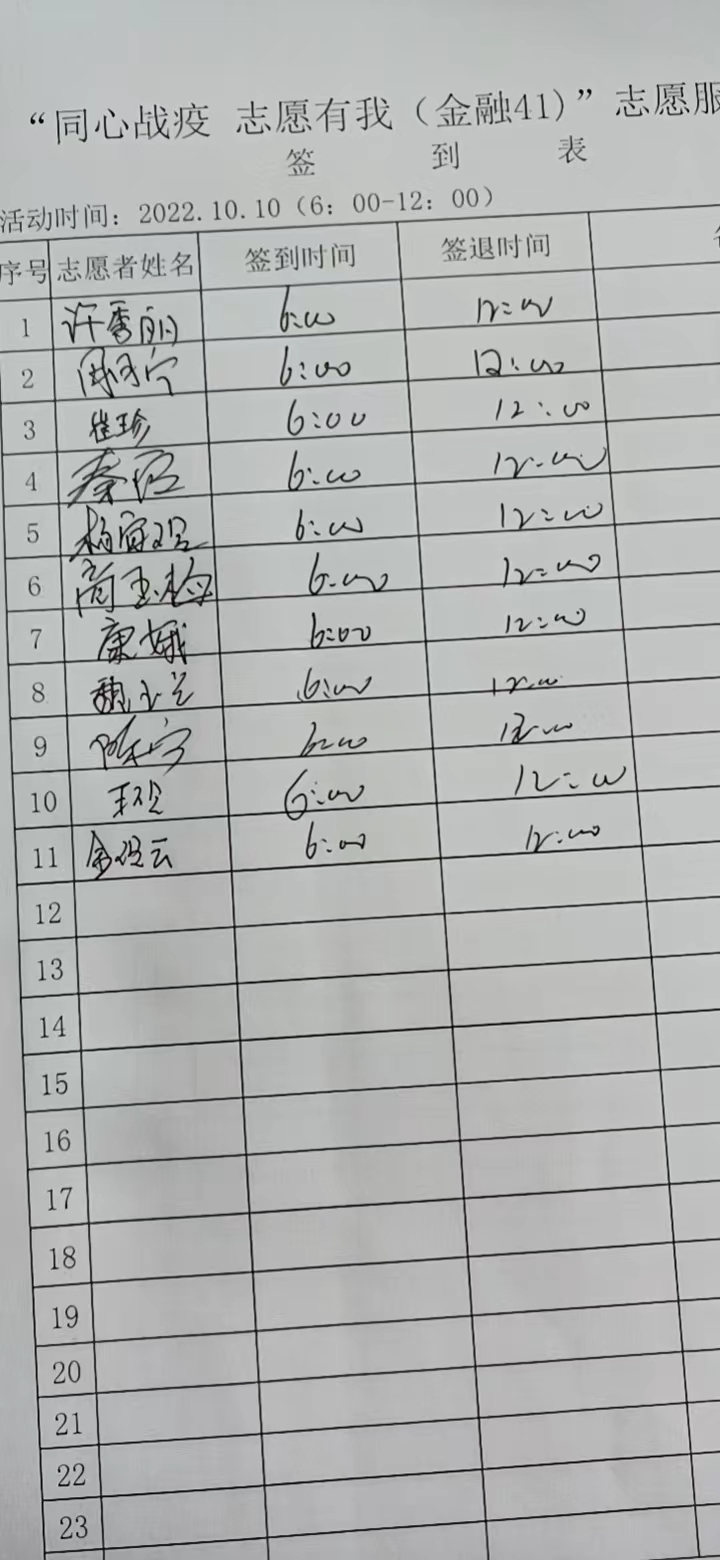 “同心战疫 志愿有我（金融41）”志愿服
签 到 表
活动时间：2022.10.10（6：00-12：00）
序号 志愿者姓名 签到时间 签退时间
1 许秀丽 6:00 12:00
2 6:00 12:00
3 崔珍 6:00 12:00
4 秦 6:00 12:00
5 6:00 12:00
6 商玉梅 6:00 12:00
7 康娥 6:00 12:00
8 魏玉兰 6:00 12:00
9 陈宁 6:00 12:00
10 6:00 12:00
11 6:00 12:00
12
13
14
15
16
17
18
19
20
21
22
23